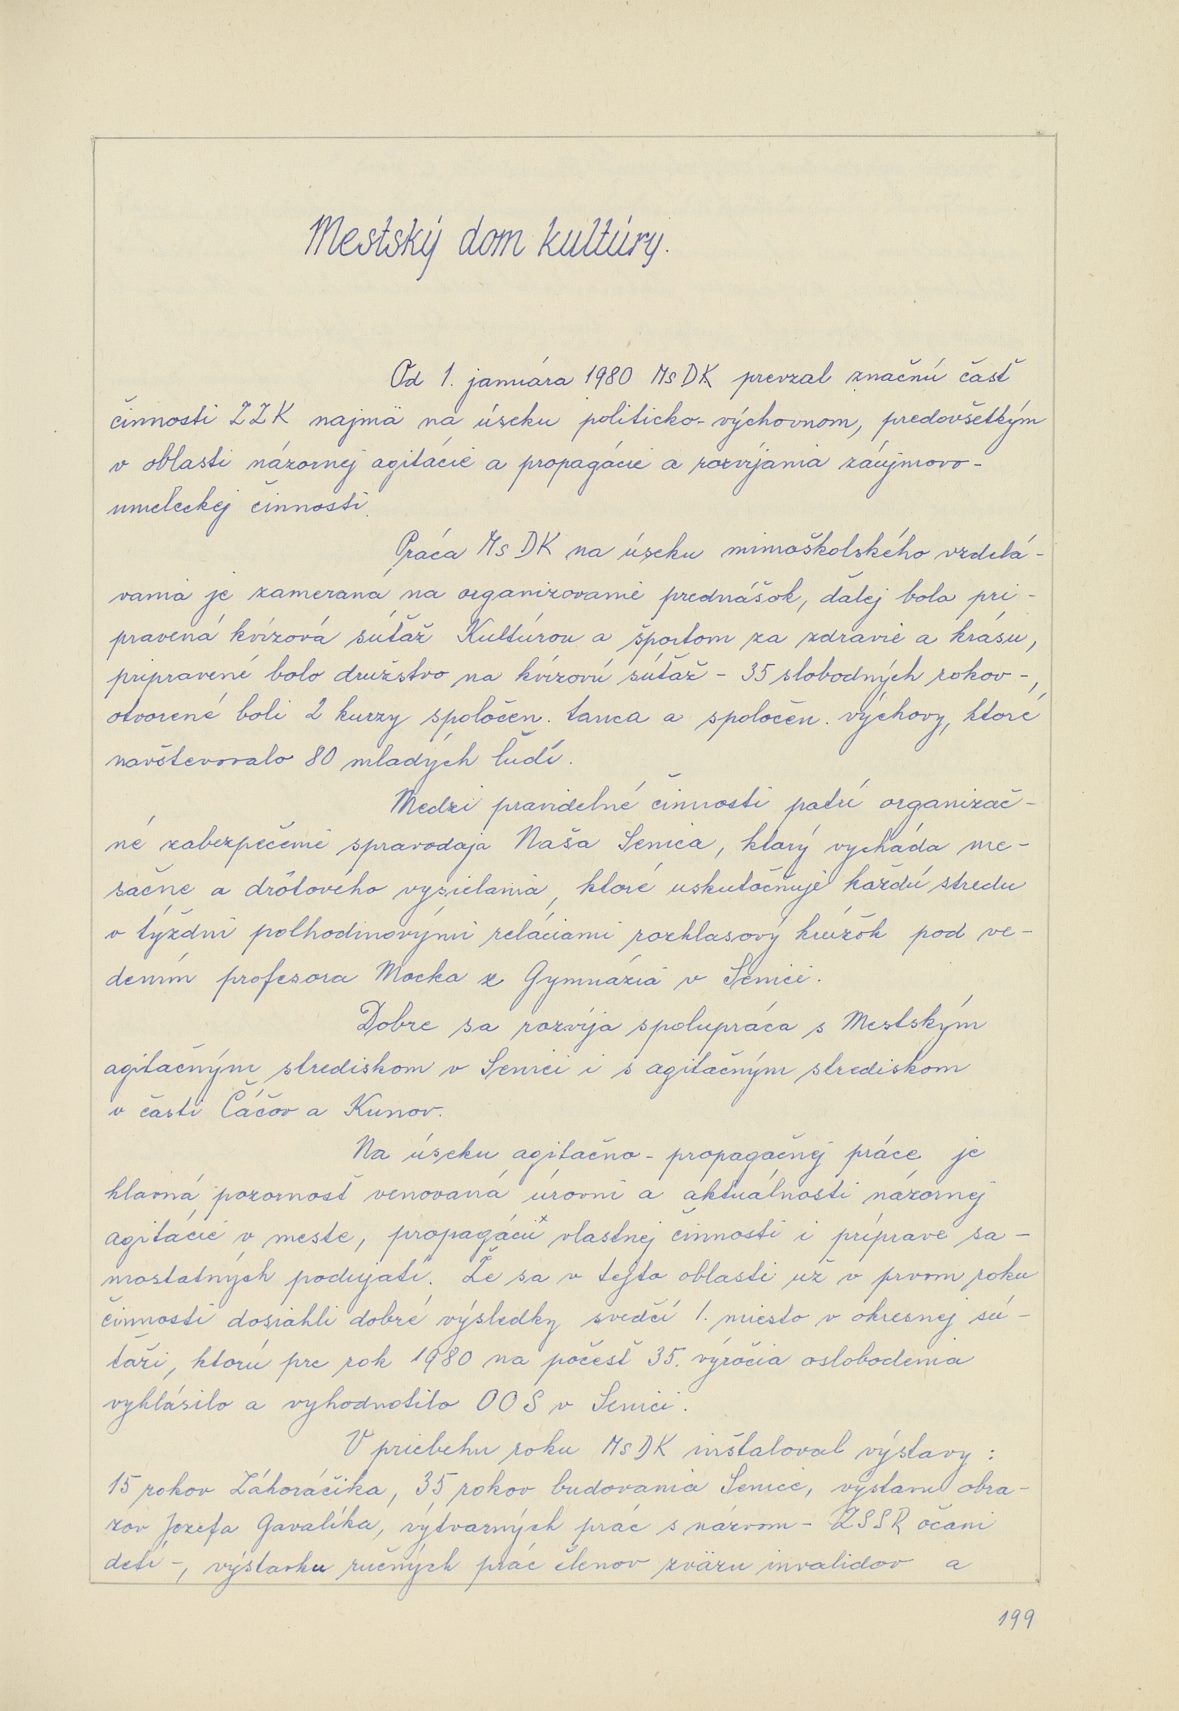 Mestský dom kultúry.
Od 1. januára 1980 MsDK prevzal značnú časť
činnosti ZZK najmä na úseku politicko-výchovnom, predovšetkým
v oblasti názornej agitácie a propagácie a rozvíjania záujmovo-
umeleckej činnosti.
Práca MsDK na úseku mimoškolského vzdelá-
vania je zameraná na organizovanie prednášok, ďalej bola pri-
pravená kvízová súťaž Kultúrou a športom za zdravie a krásu,
pripravené bolo družstvo na kvízovú súťaž - 35 slobodných rokov -,
otvorené boli 2 kurzy spoločen. tanca a spoločen. výchovy, ktoré
navštevovalo 80 mladých ľudí.
Medzi pravidelné činnosti patrí organizač-
né zabezpečenie spravodaja Naša Senica, ktorý vychádza me-
sačne a drôtového vysielania, ktoré uskutočňuje každú stredu
v týždni polhodinovými reláciami rozhlasový krúžok pod ve-
dením profesora Mocka z Gymnázia v Senici.
Dobre sa rozvíja spolupráca s Mestským
agitačným strediskom v Senici i s agitačným strediskom
v časti Čáčov a Kunov.
Na úseku agitačno-propagačnej práce je
hlavná pozornosť venovaná úrovni a aktuálnosti názornej
agitácie v meste, propagácii vlastnej činnosti i príprave sa-
mostatných podujatí. Že sa v tejto oblasti už v prvom roku
činnosti dosiahli dobré výsledky svedčí 1. miesto v okresnej sú-
ťaži, ktorú pre rok 1980 na počesť 35. výročia oslobodenia
vyhlásilo a vyhodnotilo OOS v Senici.
V priebehu roku MsDK inštaloval výstavy:
15 rokov Záhoráčika, 35 rokov budovania Senice, výstavu obra-
zov Jozefa Gavalíka, výtvarných prác s názvom - ZSSR očami
detí -, výstavku ručných prác členov zväzu invalidov a
199